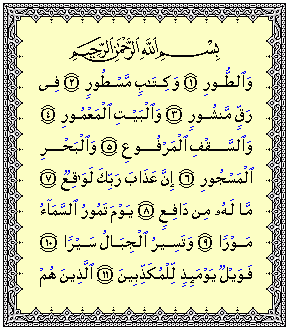 بِسْمِ اللَّهِ الرَّحْمَٰنِ الرَّحِيمِ
وَالطُّورِ ﴿١﴾ وَكِتَابٍ مَّسْطُورٍ ﴿٢﴾ فِى
رَقٍّ مَّنشُورٍ ﴿٣﴾ وَالْبَيْتِ الْمَعْمُورِ ﴿٤﴾
وَالسَّقْفِ الْمَرْفُوعِ ﴿٥﴾ وَالْبَحْرِ
الْمَسْجُورِ ﴿٦﴾ إِنَّ عَذَابَ رَبِّكَ لَوَاقِعٌ ﴿٧﴾
مَّا لَهُۥ مِن دَافِعٍ ﴿٨﴾ يَوْمَ تَمُورُ السَّمَآءُ
مَوْرًا ﴿٩﴾ وَتَسِيرُ الْجِبَالُ سَيْرًا ﴿١٠﴾
فَوَيْلٌ يَوْمَئِذٍ لِّلْمُكَذِّبِينَ ﴿١١﴾ الَّذِينَ هُمْ